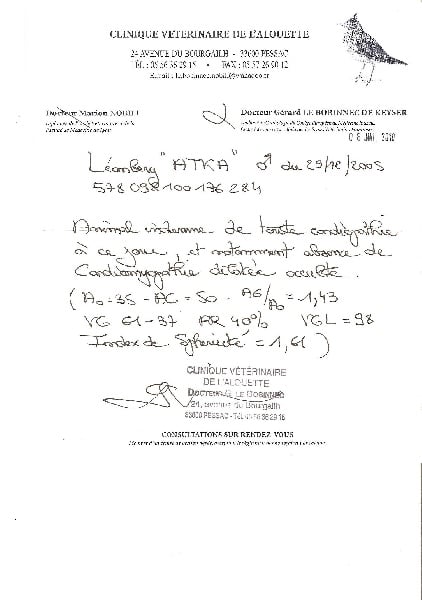 CLINIQUE VETERINAIRE DE L'ALOUETTE
24 AVENUE DU BOURGAILH - 33600 PESSAC
TÉL : 05 56 36 29 15 • FAX : 05 57 26 90 12
Email :
Docteur Marion NOBILI
Docteur Gérard LE BOBINNEC DE KEYSER
Léonberg "ATKA" ♂ du 29/12/2005
578098100176284
Animal indemne de toute cardiopathie
à ce jour, et notamment absence de
Cardiomyopathie dilatée occulte.
(Ao=35 - AG=50. AG/Ao = 1,43
VG 61-37 FR 40% VGL=98
Index de Sphéricité = 1,61)
CLINIQUE VÉTÉRINAIRE
DE L'ALOUETTE
DOCTEUR G. LE BOBINNEC
24, avenue du Bourgailh
33600 PESSAC - Tél. 05 56 36 29 15
CONSULTATIONS SUR RENDEZ-VOUS